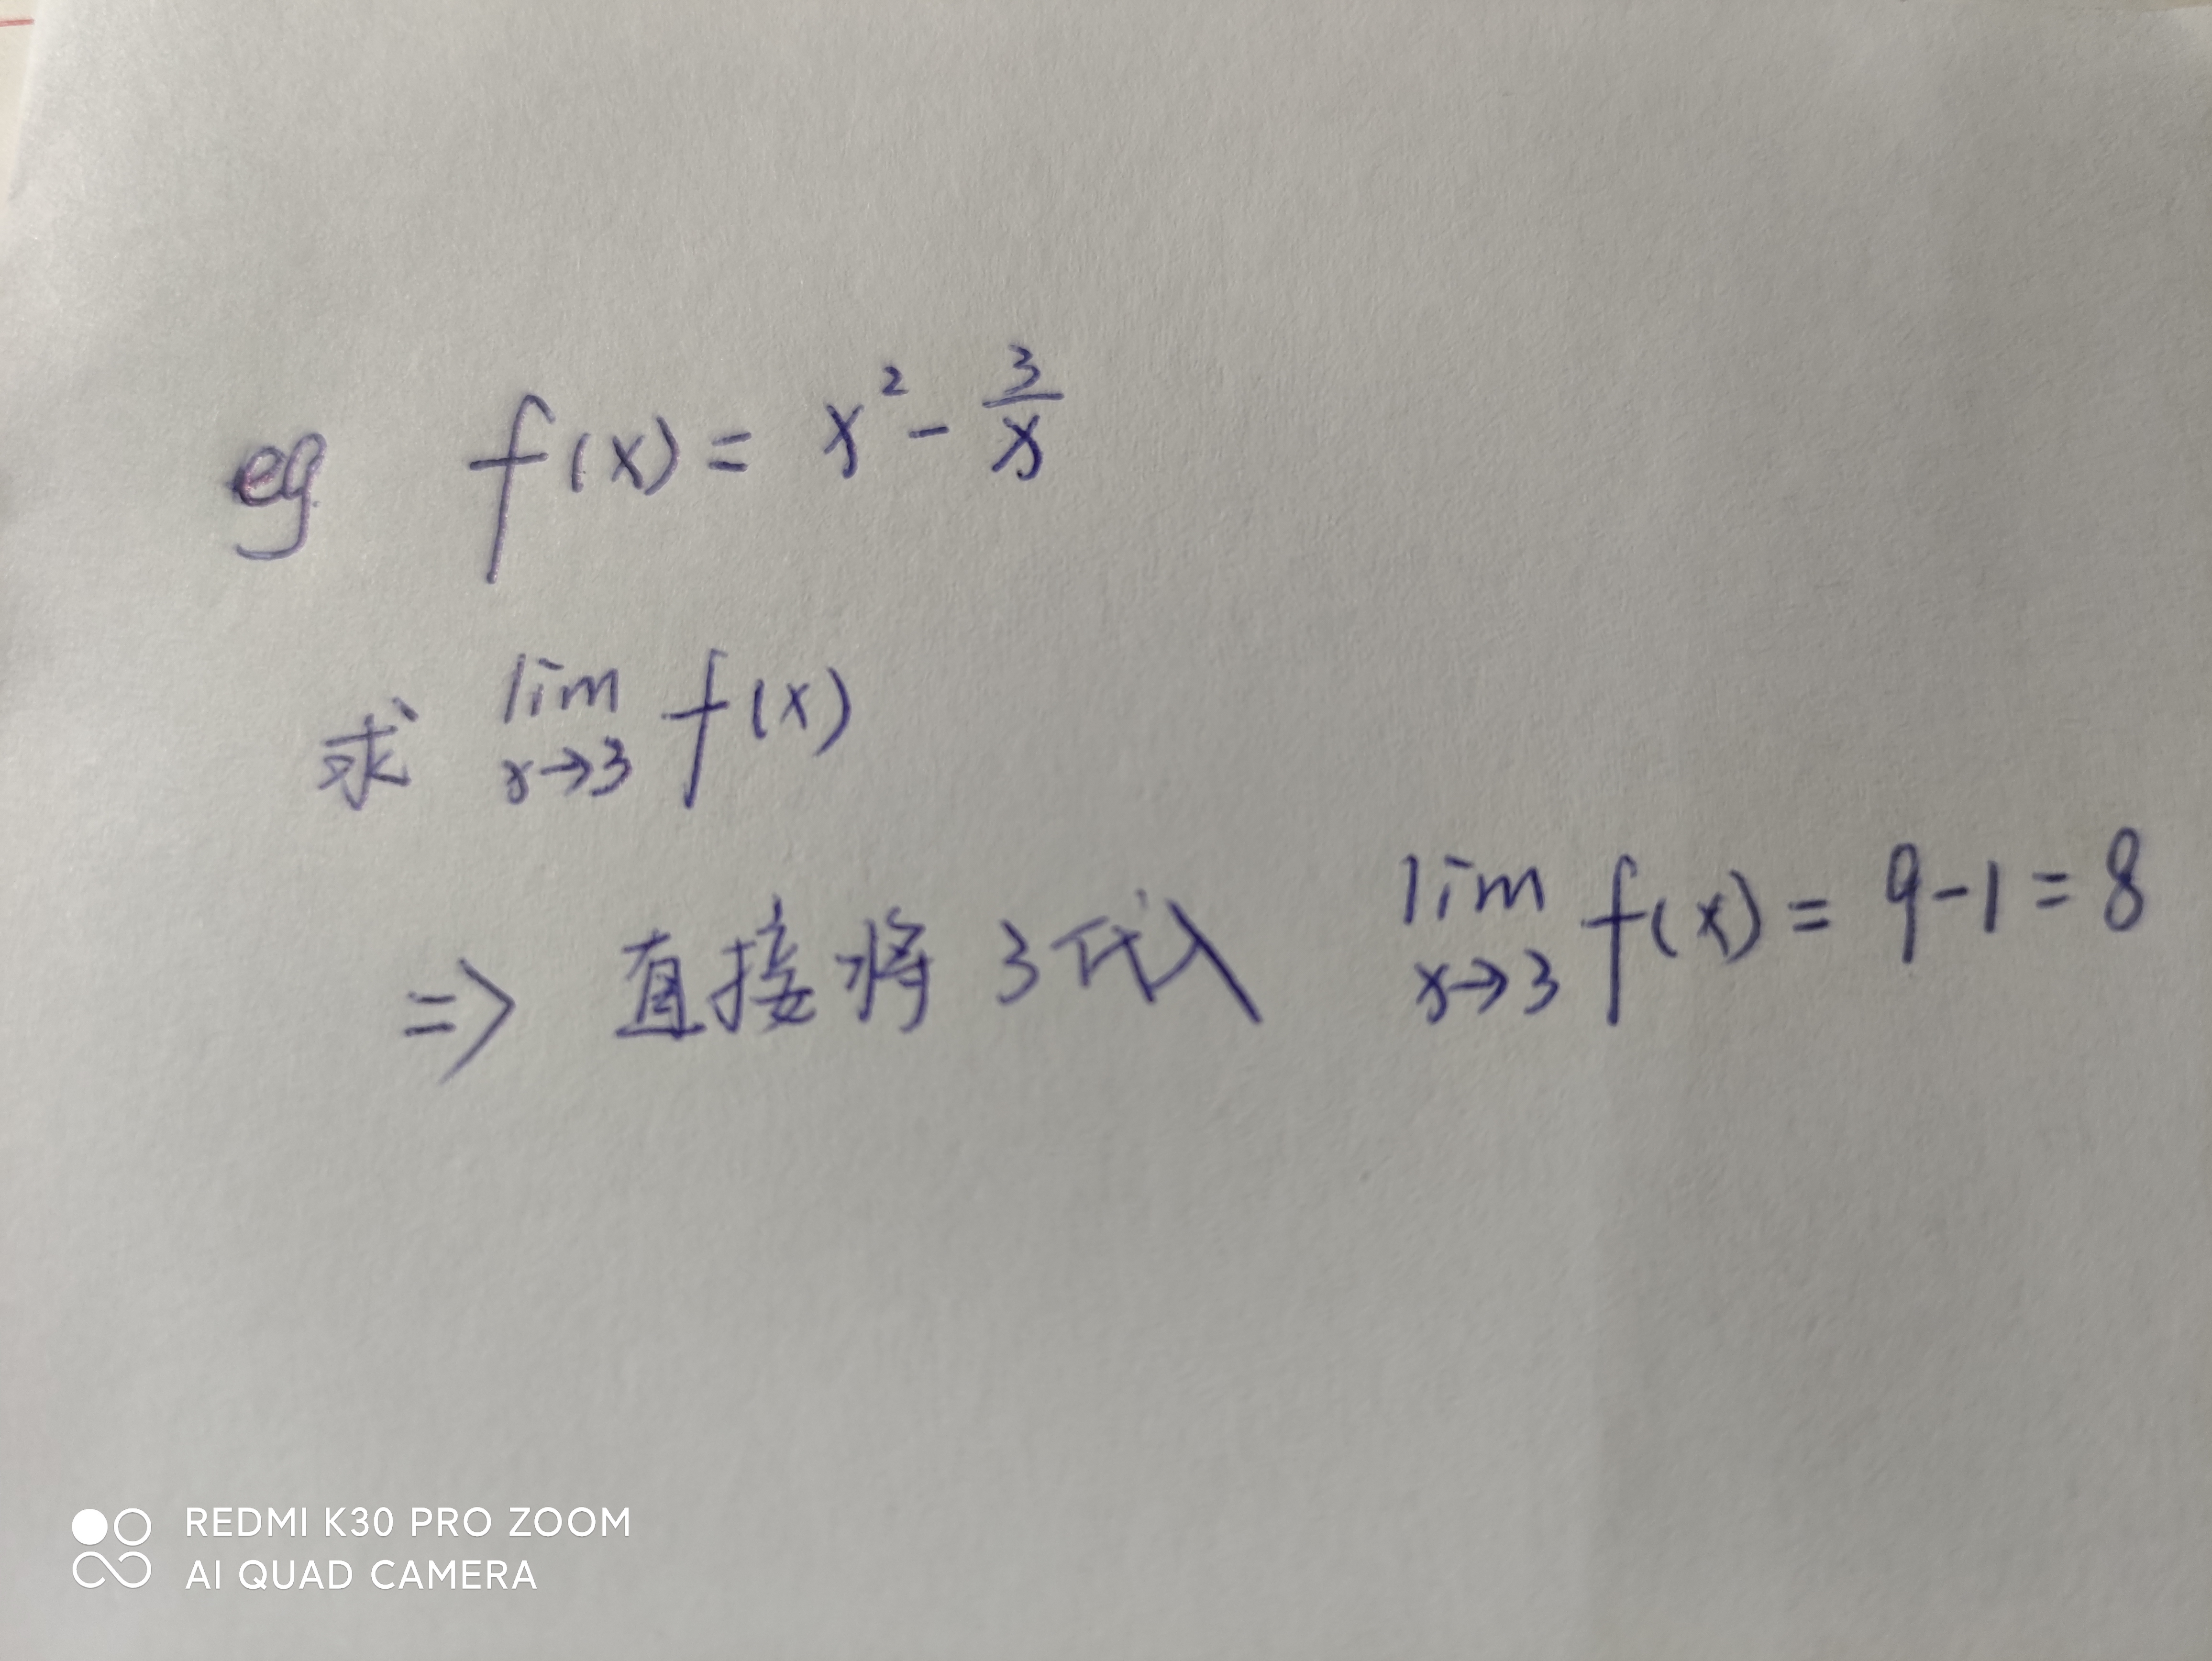 eg f(x) = x² - 3/x
求 lim x→3 f(x)
⇒ 直接将3代入 lim x→3 f(x) = 9-1 = 8
REDMI K30 PRO ZOOM
AI QUAD CAMERA